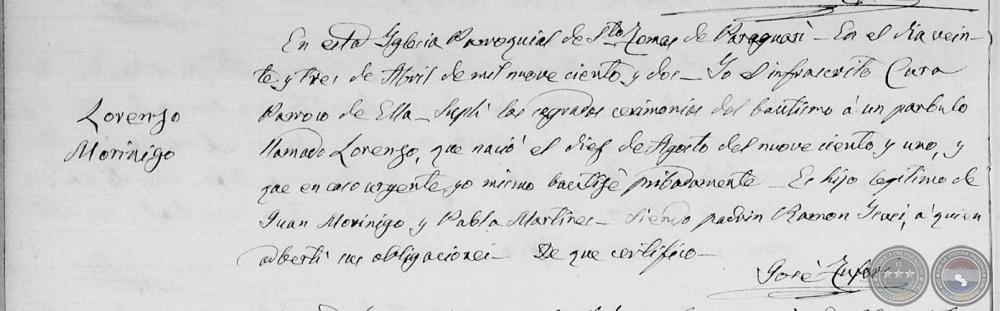 En esta Yglecia Parroquial de Sto Tomas de Paraguari – En el dia vein-
te y tres de Abril de mil nueve ciento y dos – Yo el infrascrito Cura
Lorenso
Morinigo
Parroco de Ella – Suplí las sagradas cerimonias del bautismo á un parbulo
llamado Lorenzo, que nació el dies de Agosto del nueve ciento y uno, y
que en caso urgente, yo mismo bautisé pribadamente – Es hijo legitimo de
Juan Morinigo y Pabla Martines – siendo padrin Ramon á quien
adbertí sus obligaciones – De que certifico –
José